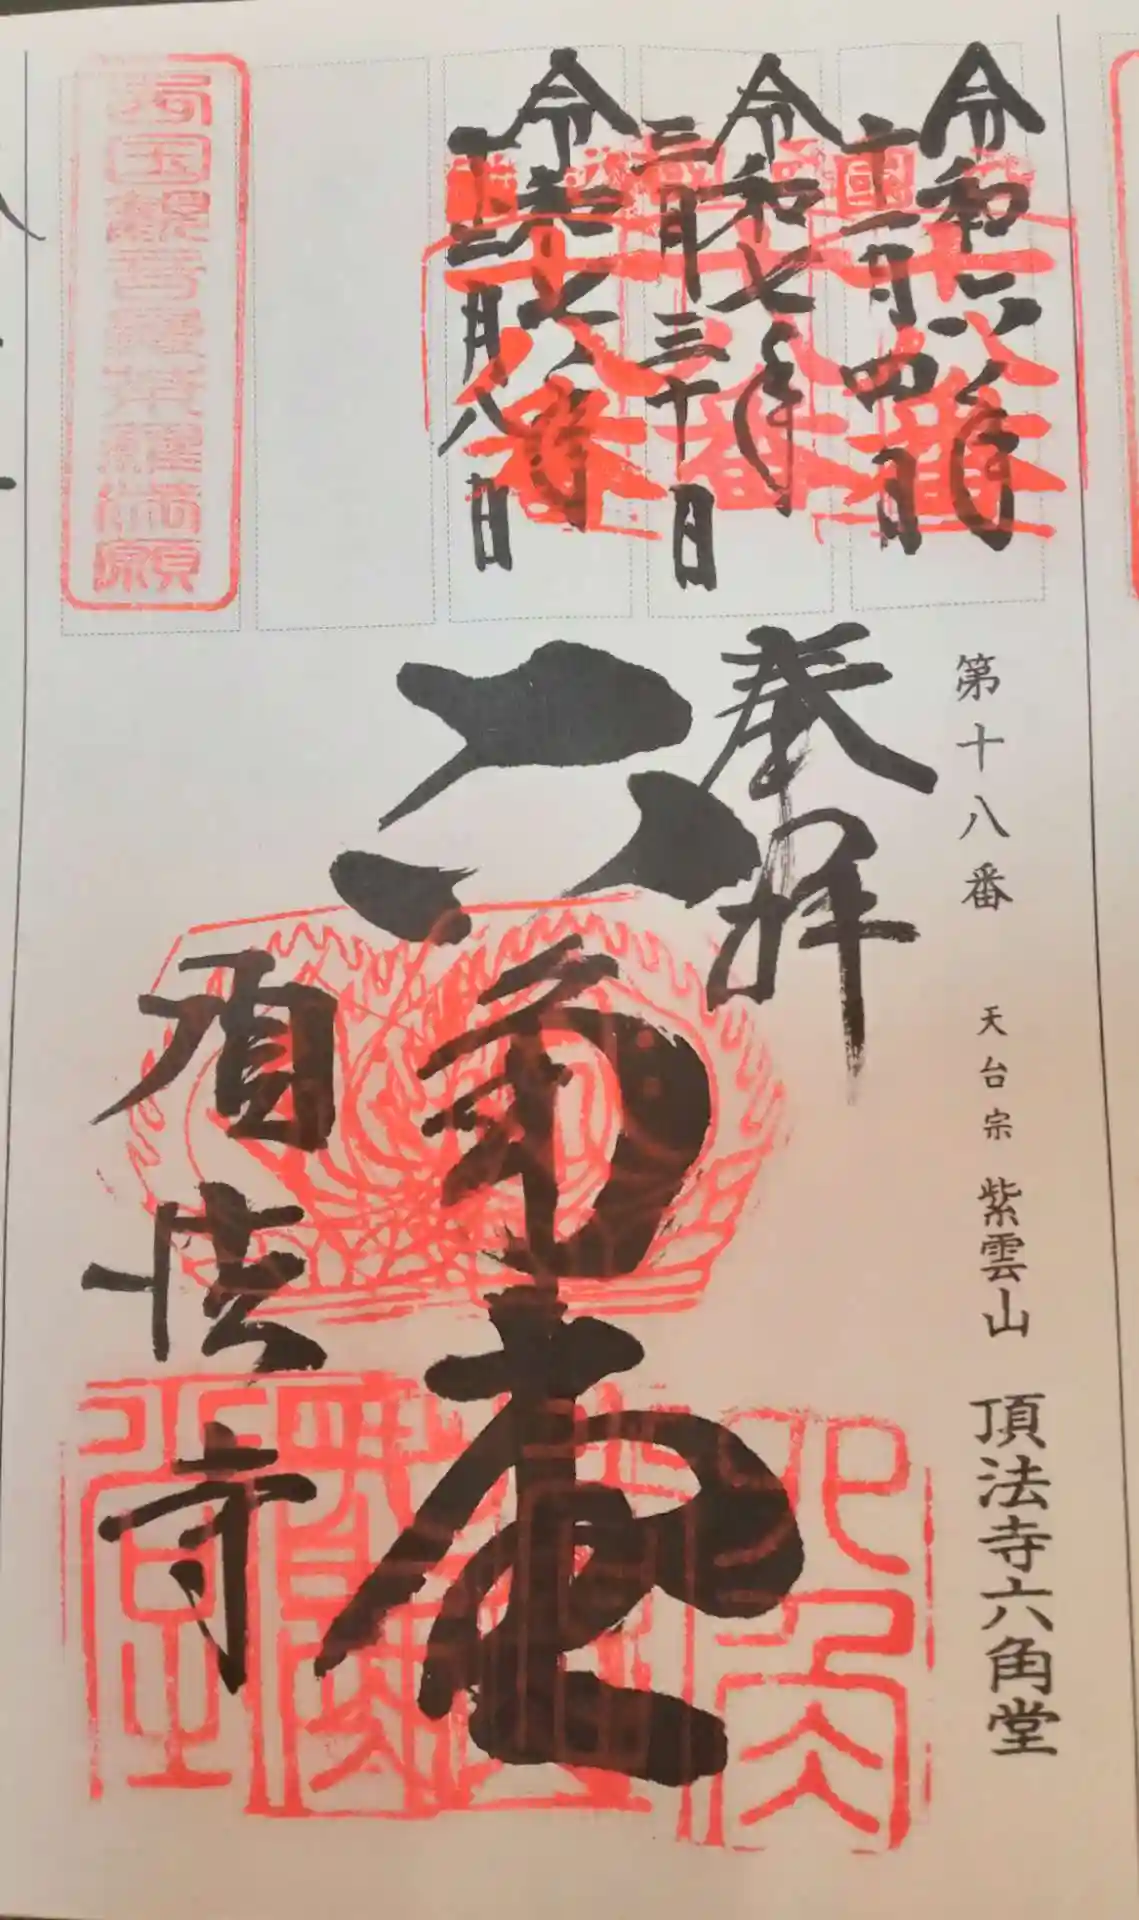 第十八番 天台宗 紫雲山 頂法寺六角堂
令和六年
十二月四日
令和七年
三月三十日
令和七年
十二月八日
奉拝
六角堂
頂法寺
十八番
十八番
十八番